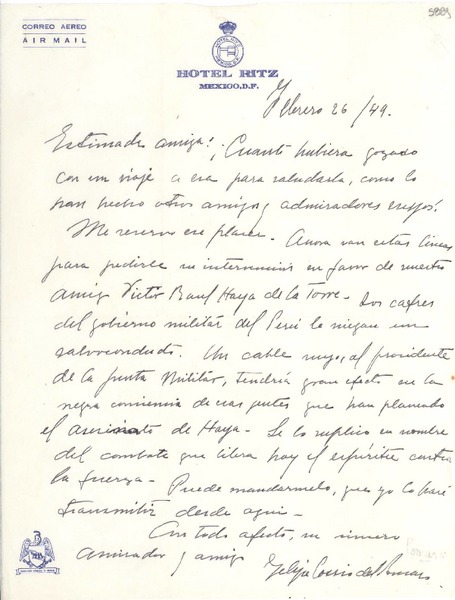 5889
CORREO AEREO
AIR MAIL
HOTEL RITZ
MEXICO, D.F.
Febrero 26/49.
Estimada amiga: ¡Cuánto hubiera gozado
con un viaje a esa para saludarla, como lo
han hecho otros amigos y admiradores suyos!
Me reservo ese placer. Ahora van estas líneas
para pedirle su intervención en favor de nuestro
amigo Victor Raul Haya de la Torre. Los cafres
del gobierno militar del Perú le niegan un
salvoconducto. Un cable suyo, al presidente
de la Junta Militar, tendría gran efecto en la
negra conciencia de esas gentes que han planeado
el asesinato de Haya. Se lo suplico en nombre
del combate que libra hoy el espíritu contra
la fuerza. Puede mandármelo, que yo lo haré
transmitir desde aquí.
Con todo afecto, su sincero
admirador y amigo
Felipe Cossio del Pomar